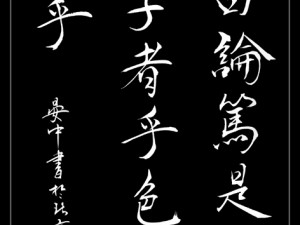 曰論篤是
子者乎色
乎
晏中書於